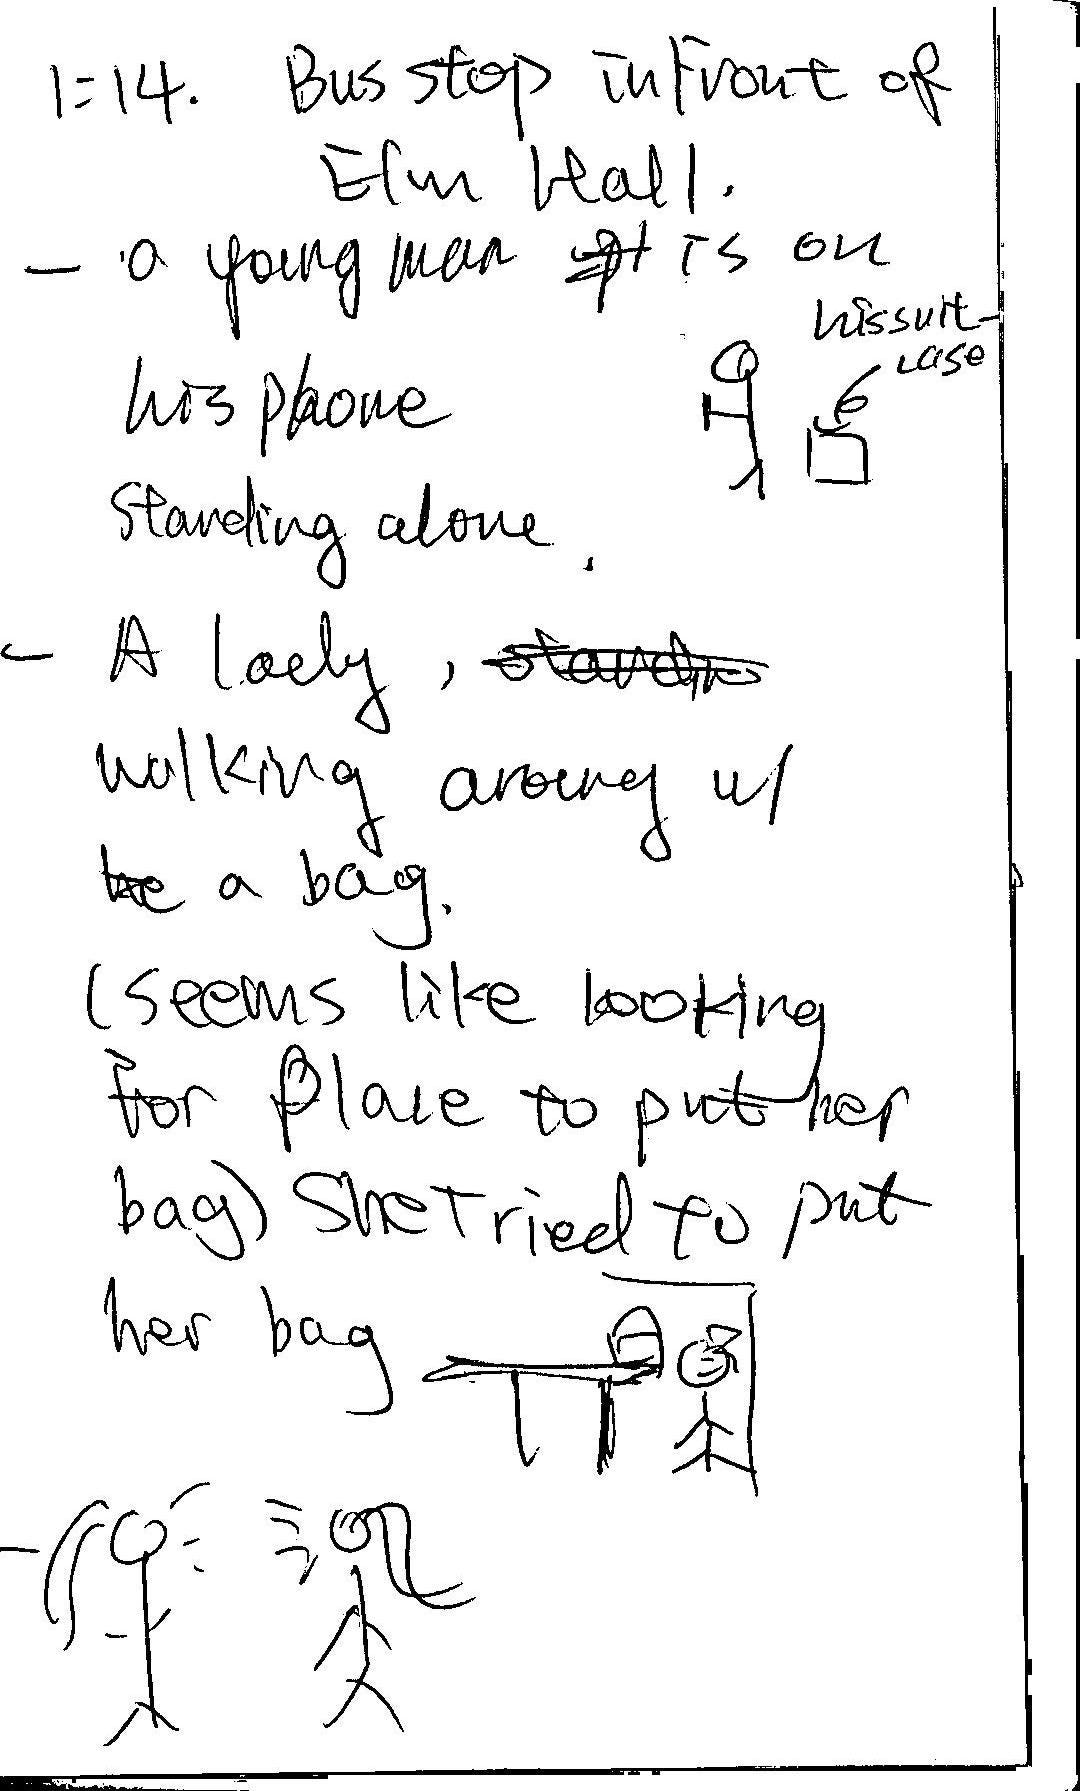 1:14. Bus stop in Front of
Elm Hall.
- a young man is on
his phone
his suit-
case
Standing alone.
- A lady,
walking around w/
a bag.
(seems like looking
for place to put her
bag) She Tried to put
her bag
-